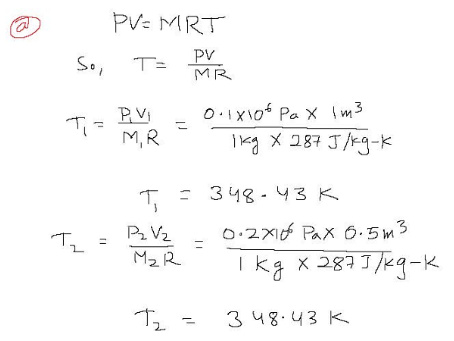 ⓐ PV = MRT
So, T = PV / MR
T₁ = P₁V₁ / M₁R = 0.1×10⁶ Pa × 1m³ / 1kg × 287 J/kg-K
T₁ = 348.43 K
T₂ = P₂V₂ / M₂R = 0.2×10⁶ Pa × 0.5m³ / 1 kg × 287 J/kg-K
T₂ = 348.43 K